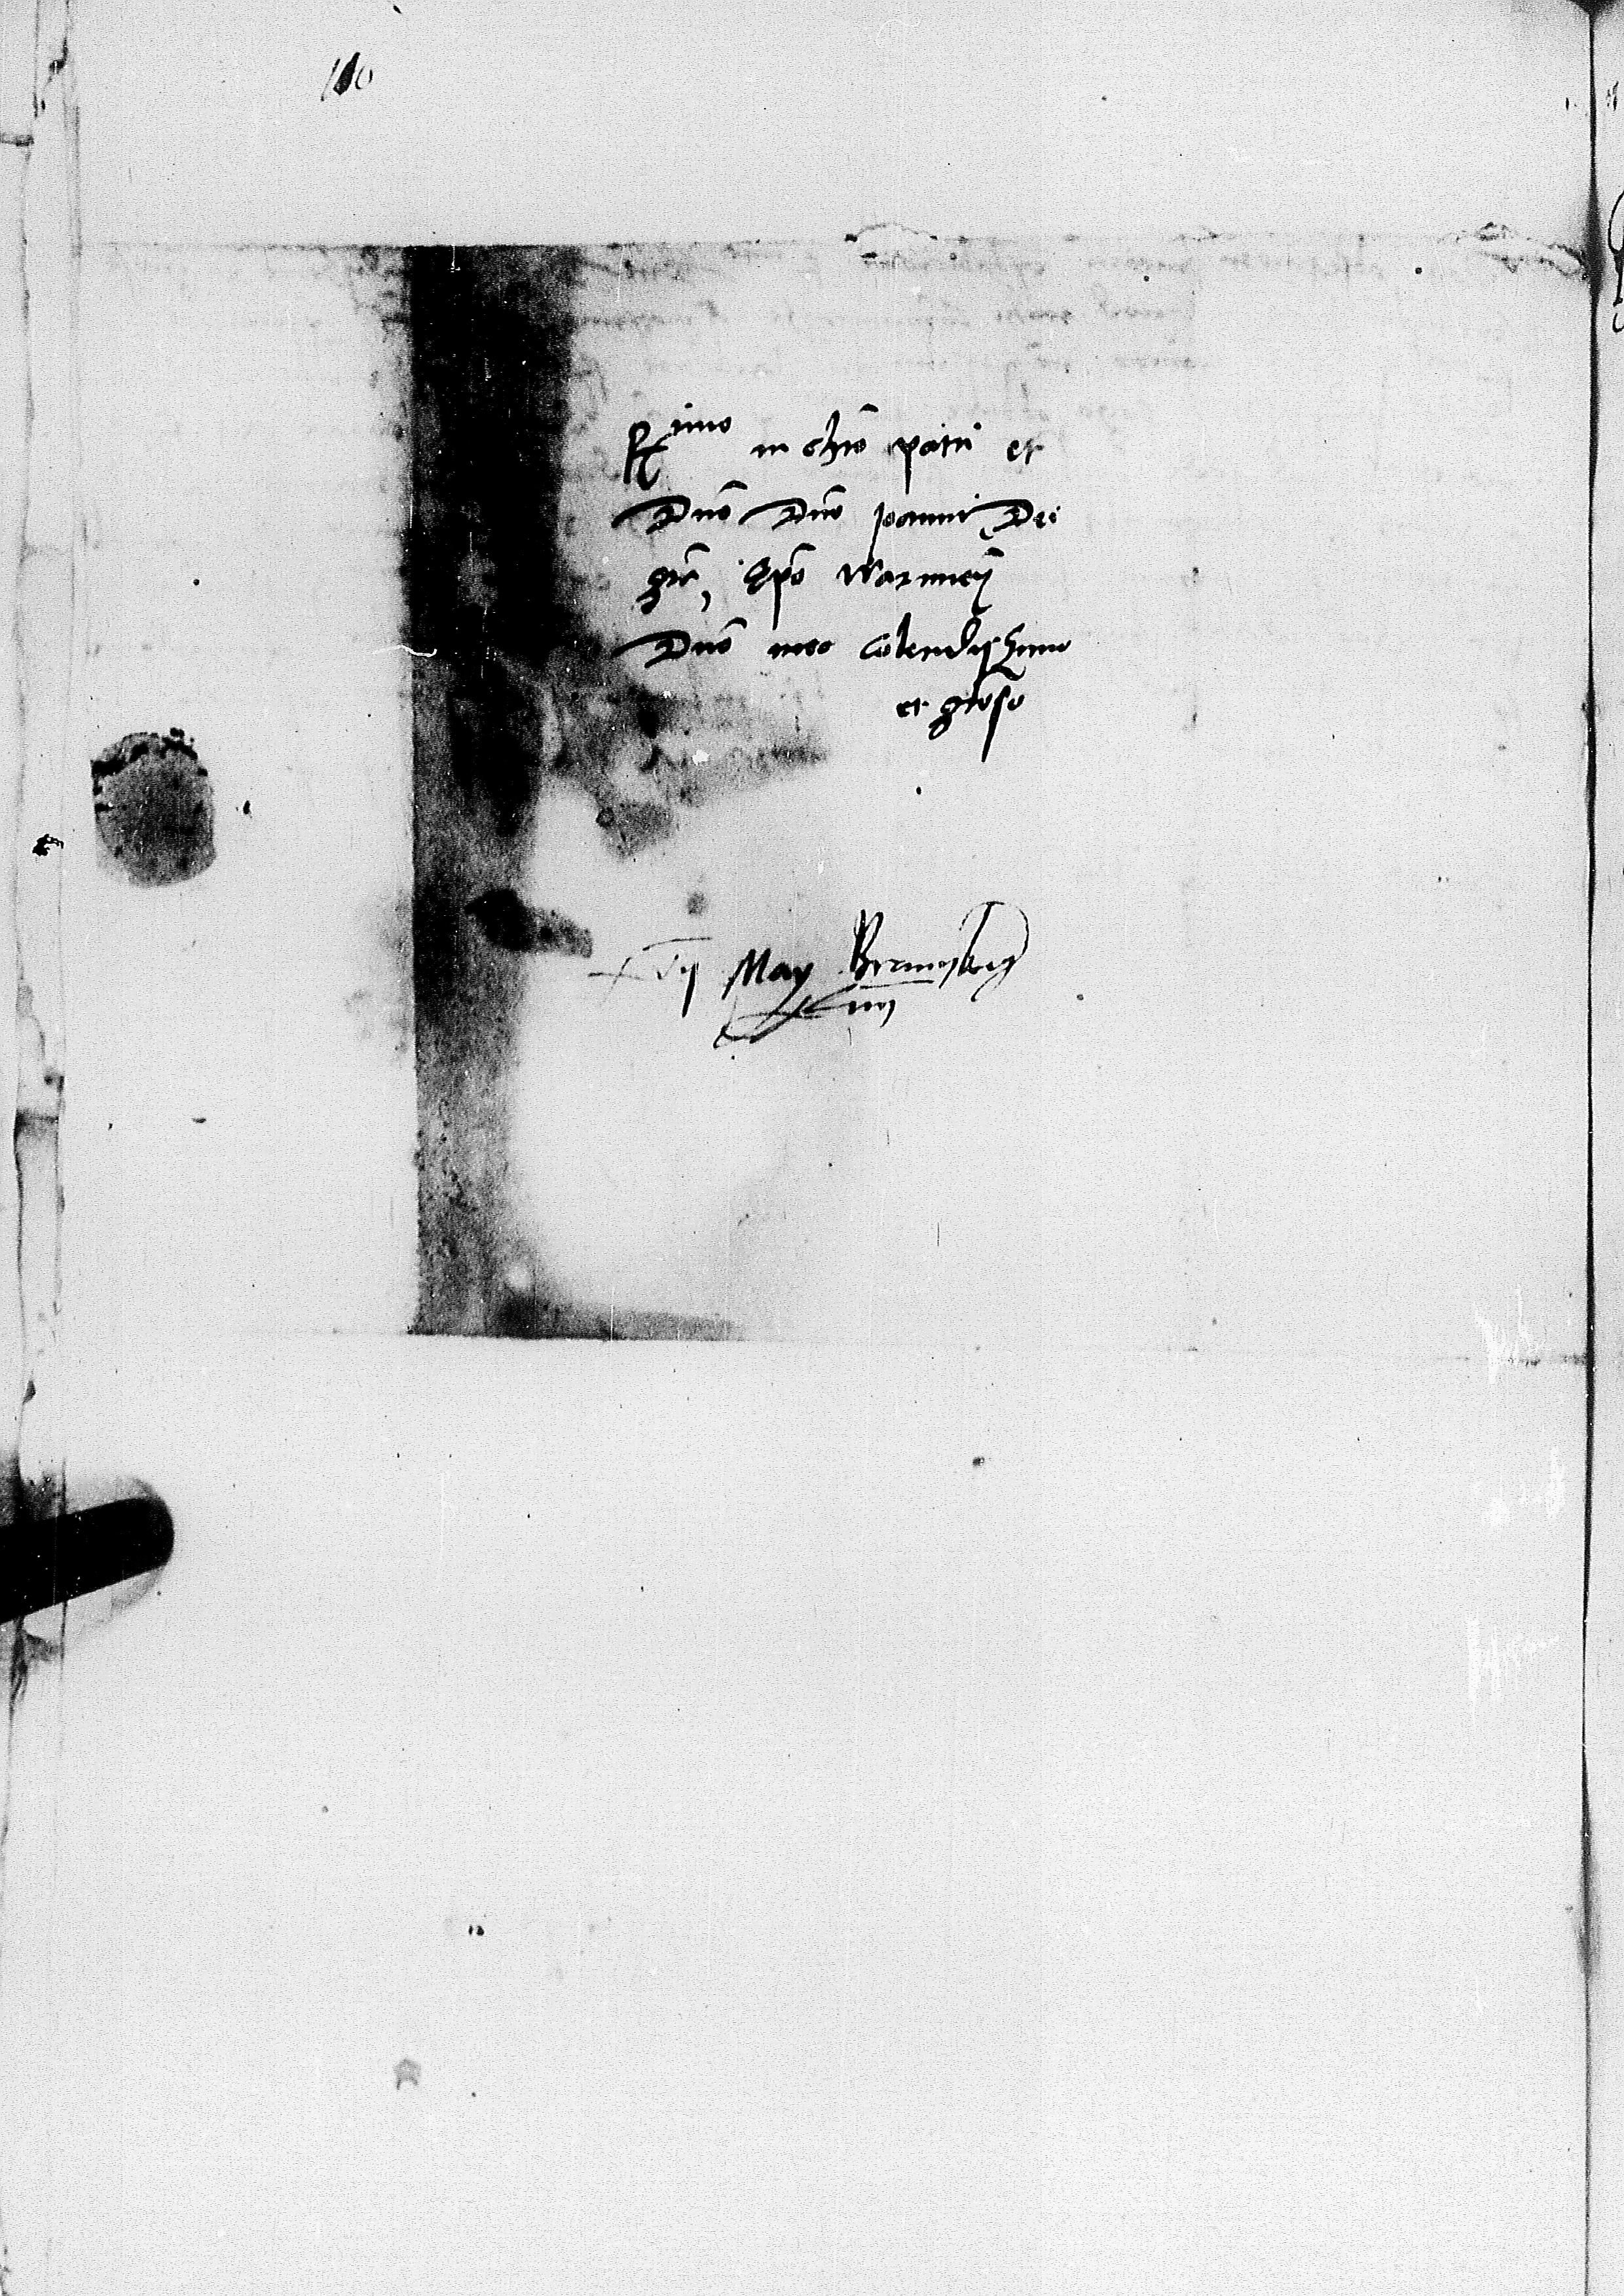 R^imo in chro patri et
Dno Dno Joanni Dei
gra, Epo Warmieñ
Dno meo colendissimo
et gratioso
May Brunsberg